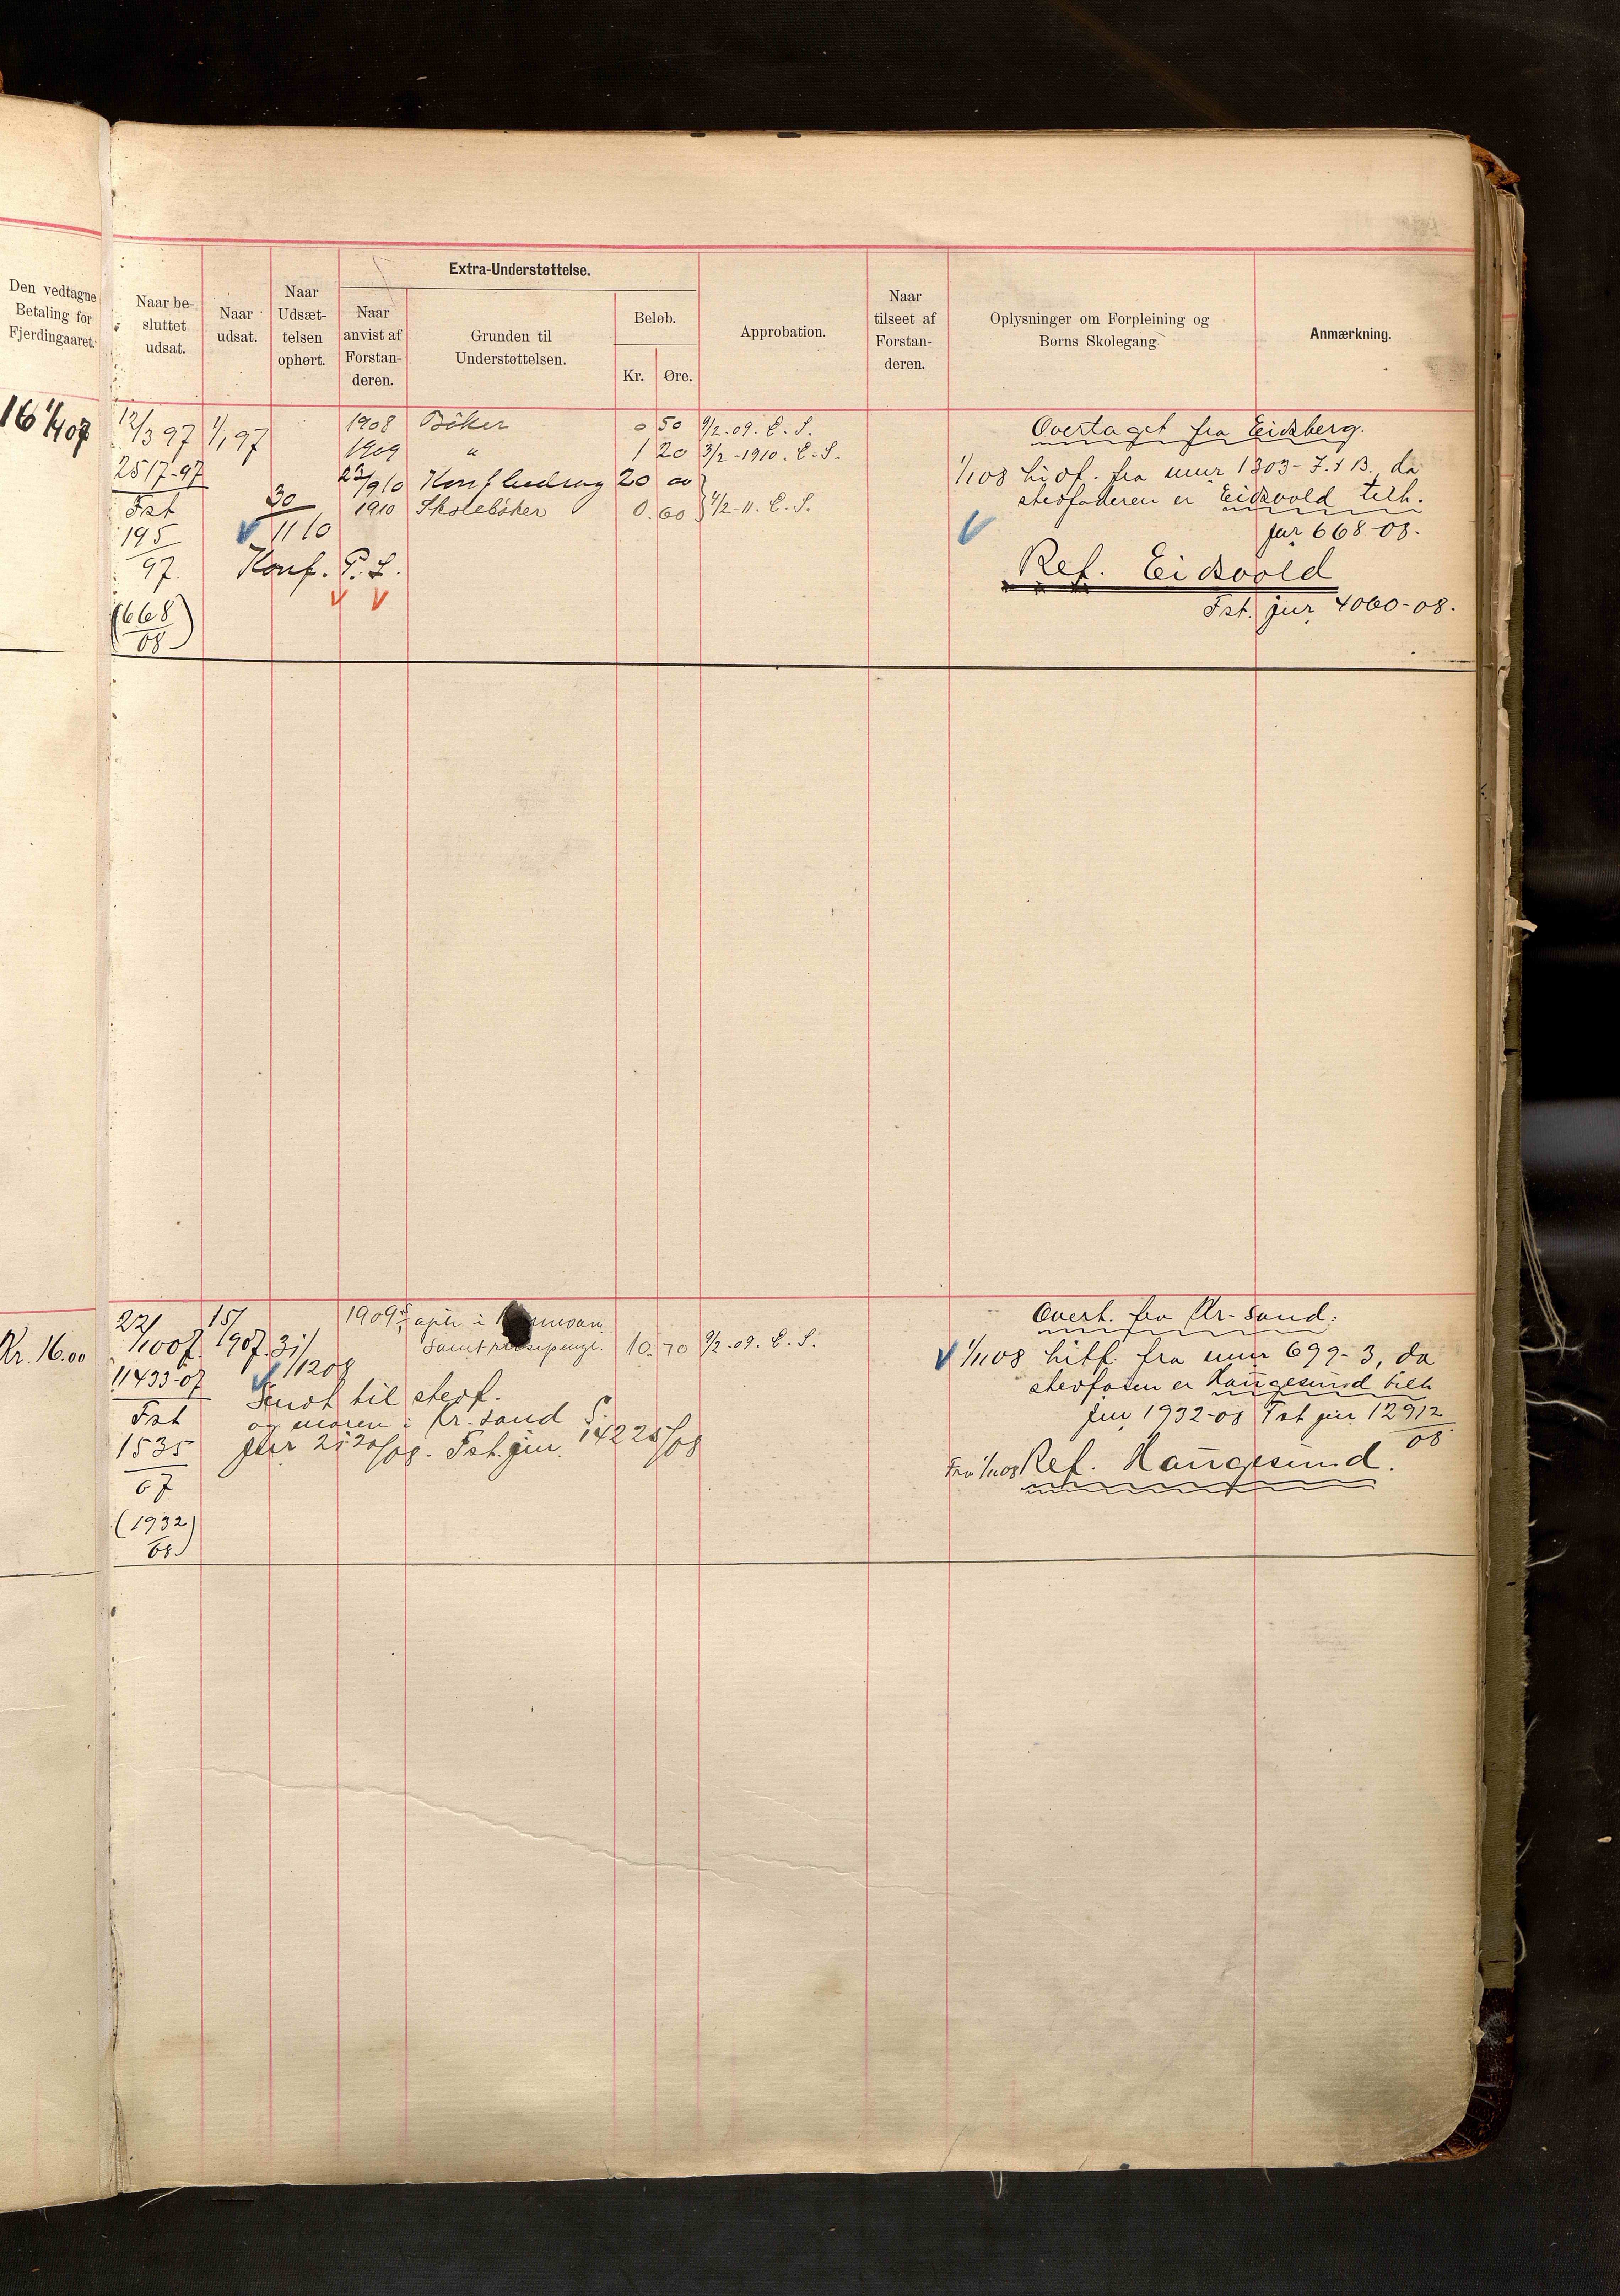 Den vedtagne
Betaling for
Fjerdingaaret.
Naar be-
sluttet
udsat.
Naar
udsat.
Naar
Udsæt-
telsen
ophørt.
Extra-Understøttelse.
Naar
anvist af
Forstan-
deren.
Grunden til
Understøttelsen.
Beløb.
Kr.
Øre.
Approbation.
Naar
tilseet af
Forstan-
deren.
Oplysninger om Forpleining og
Børns Skolegang
Anmærkning.
16 1/4 07
12/3 97
1/1 97
2517-97
Fst
195
97.
(668
08)
30
11 10
Konf. P. L.
1908 Böker 0 50 9/2-09. E. S.
1909 " 1 20 3/2-1910. E. S.
23/9 10 Konf bidrag 20 00
1910 Skolebøker 0.60 4/2-11. E. S.
Overtaget fra Eidsberg.
1/1 08 hidf. fra mur 1303- J. & B. da
stedfaderen er Eidsvold tilh.
jur 668-08.
Ref. Eidsvold
Fst. jur. 4060-08.
Kr. 16.00
22/10 07.
15/ 1907.
31/12 08
11433-07
Fst
1535
07
(1932)
08)
Sendt til stedf.
og moren i Kr. sand
jur 2120/08. Fst. jur. 14225/08
1909
samt reisepenge. 10.70 9/2-09. E. S.
Overt. fra Kr-sand.
1/1 08 hitf. fra mur 699-3, da
stedfaren er Haugesund tilh
jur 1932-08 Fst jur 12912
08
Fra 1/1 08 Ref. Haugesund.